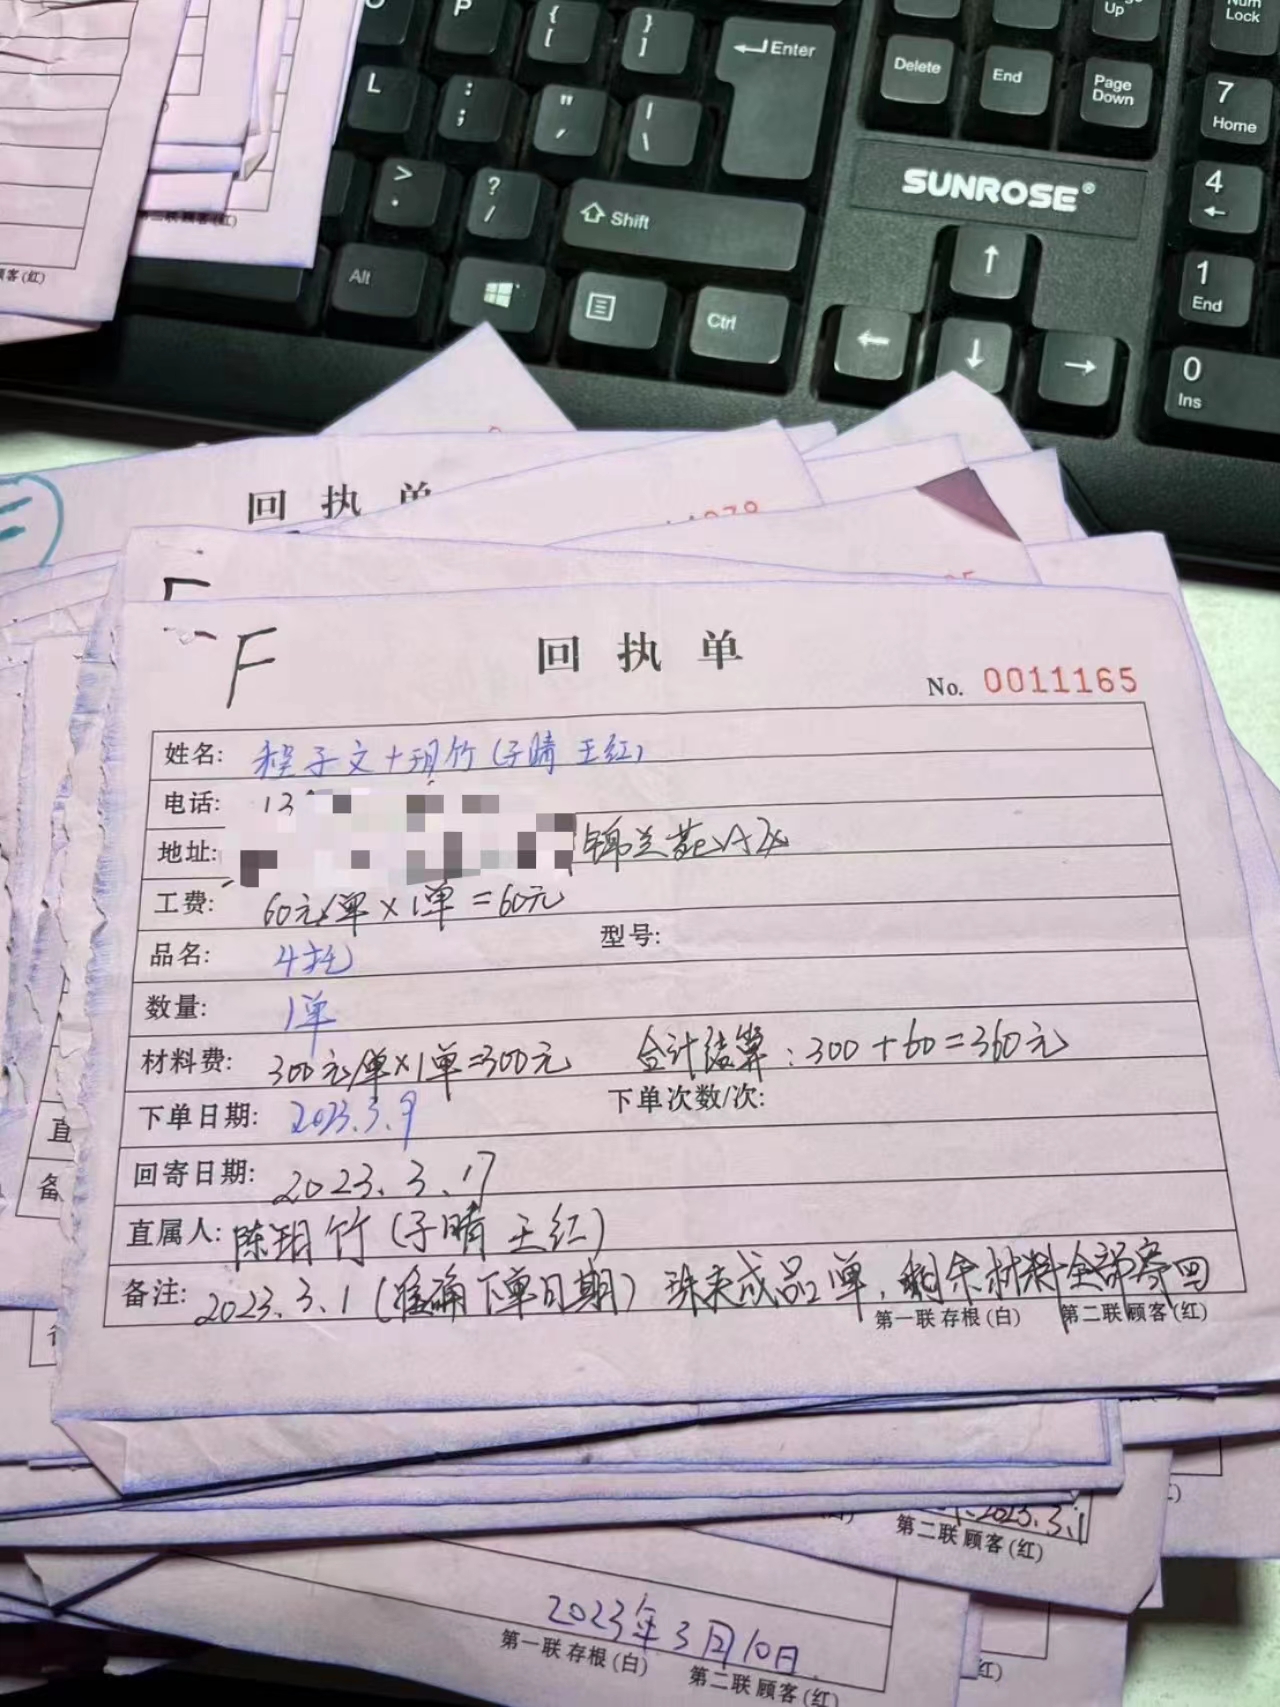 O
P
{
[
}
]
Enter
Delete
End
Page
Up
Page
Down
Num
Lock
7
Home
L
:
;
"
'
|
\
4
←
>
.
?
/
Shift
SUNROSE®
↑
1
End
Alt
Ctrl
←
↓
→
0
Ins
顾客(红)
第二联 顾客(红)
回执单
回执单
F
No. 0011165
姓名: 程子文+玥竹(子晴 王红)
电话: 13
地址: 锦兰苑
工费: 60元/单×1单=60元
品名: 4托
型号:
数量: 1单
材料费: 300元/单×1单=300元 合计结算:300+60=360元
下单日期: 2023.3.9
下单次数/次:
回寄日期: 2023.3.17
直属人: 陈玥竹(子晴 王红)
备注: 2023.3.1(准确下单日期) 珠表成品1单,剩余材料全部寄回
第一联 存根(白) 第二联 顾客(红)
直
备
2023.3.1
第二联 顾客(红)
2023年3月10日
第一联 存根(白) 第二联 顾客(红)